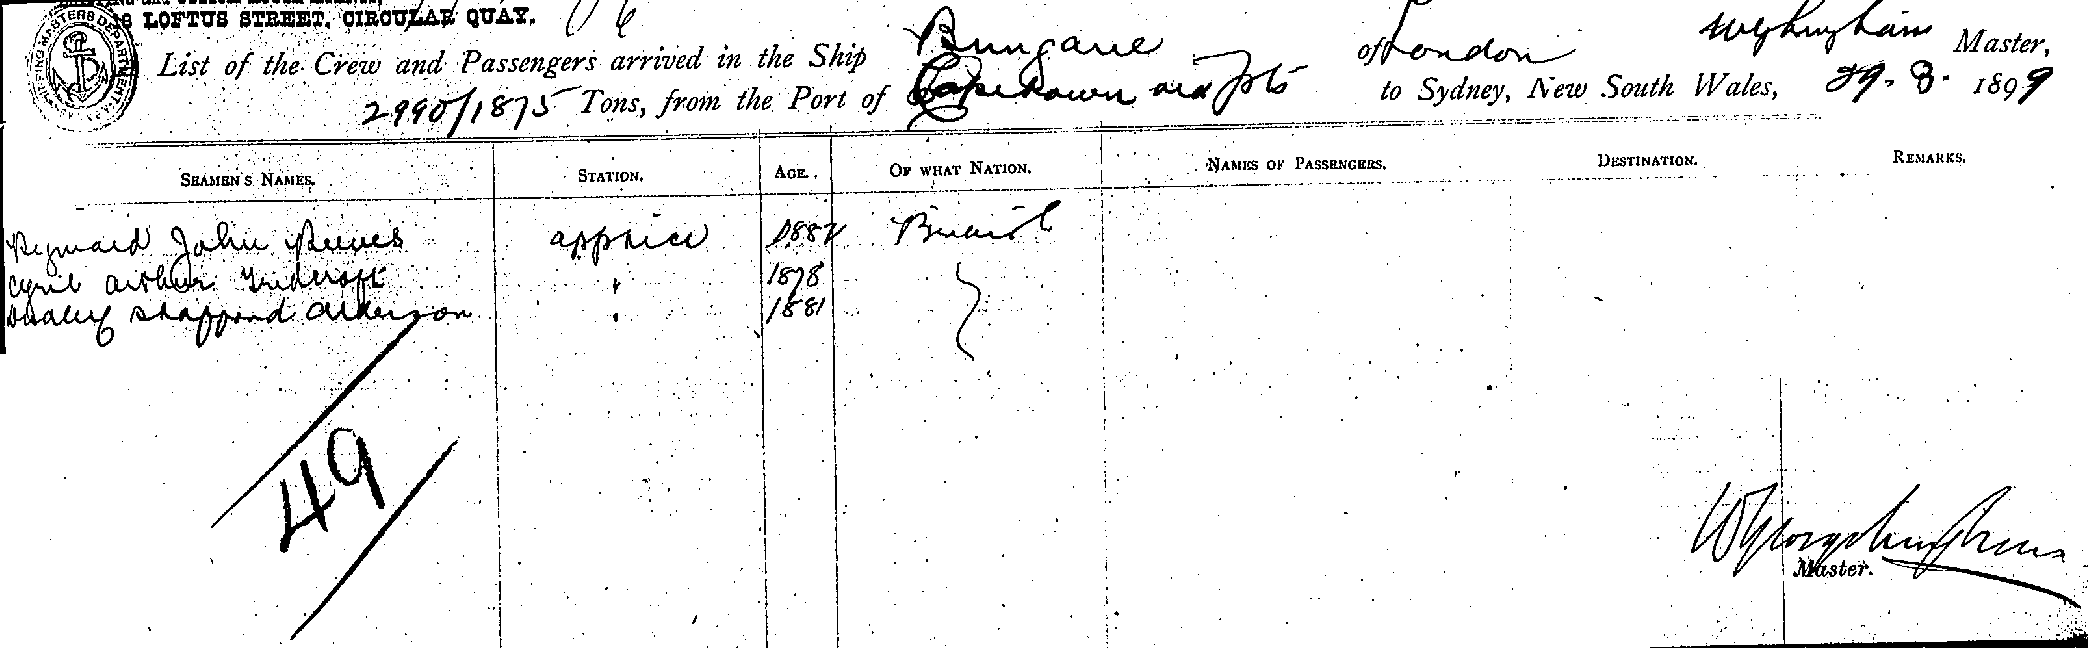 LOFTUS STREET, CIRCULAR QUAY.
SHIPPING MASTERS DEPARTMENT
List of the Crew and Passengers arrived in the Ship Bungaree of London Master,
2990/1875 Tons, from the Port of Capetown and Pts to Sydney, New South Wales, 29. 8. 1899
SEAMEN'S NAMES. STATION. AGE. OF WHAT NATION. NAMES OF PASSENGERS. DESTINATION. REMARKS.
John Reeves apprice 1882 British
Cyril Arthur " 1878
Dudley Shappard Alderson " 1881
49
Master.